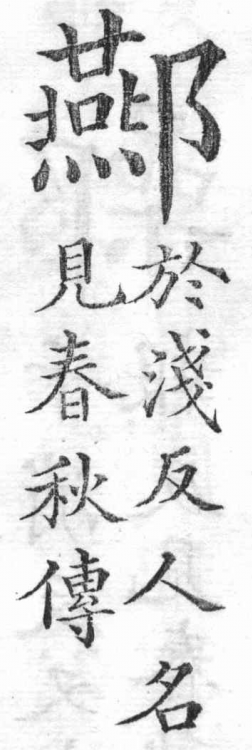 酀
於淺反人名
見春秋傳